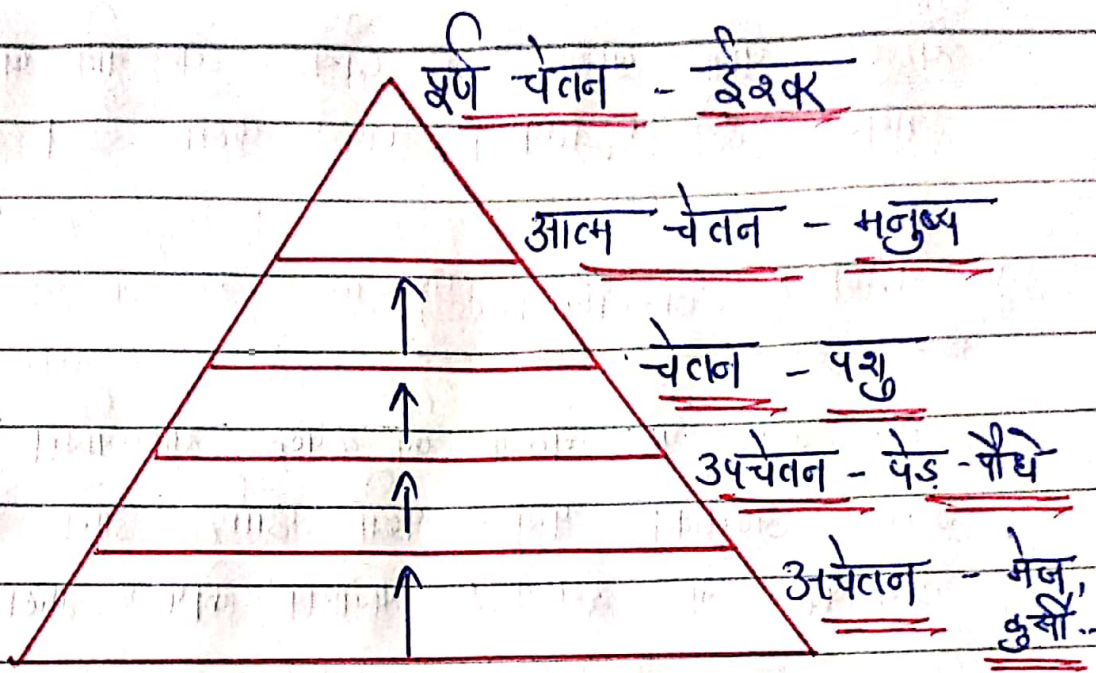 पूर्ण चेतन - ईश्वर
आत्म चेतन - मनुष्य
चेतन - पशु
उपचेतन - पेड़ -पौधे
अचेतन - मेज,
कुर्सी..